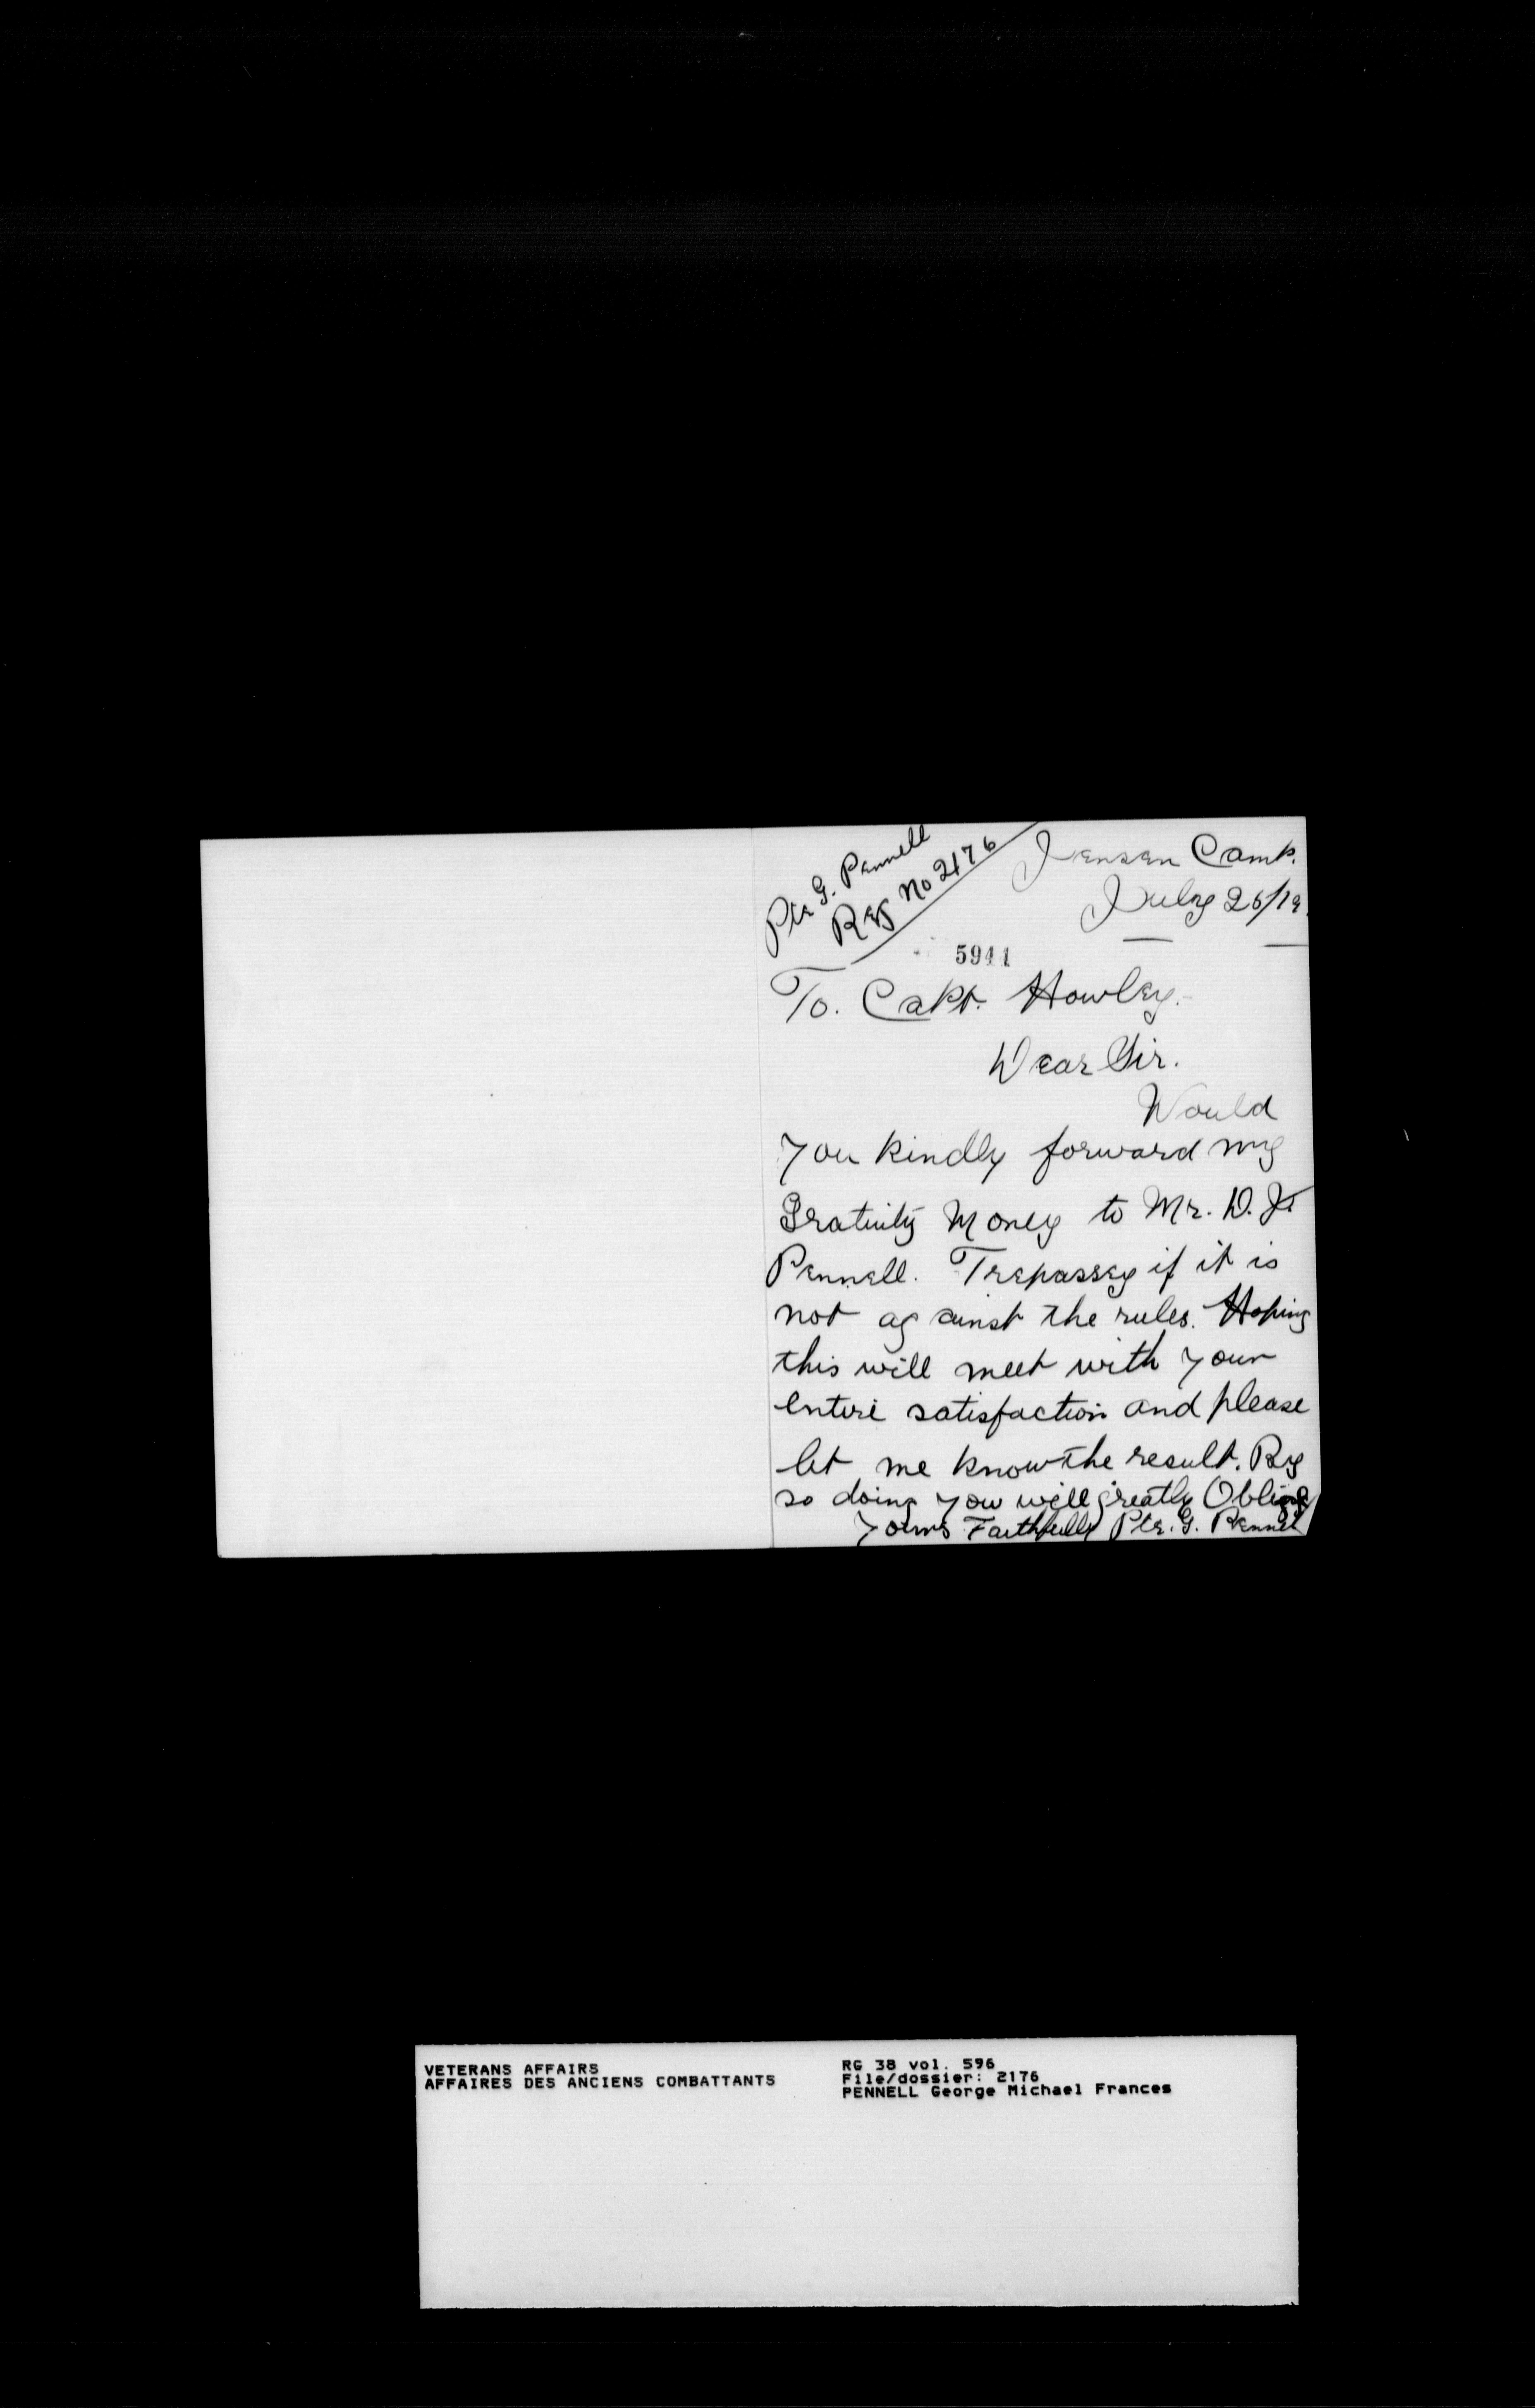 Pte G. Pennell
Reg No 2176
Jensen Camp.
July 26/19.
5941
To. Capt. Howley.
Dear Sir.
Would
you kindly forward my
Gratuity Money to Mr. D. J.
Pennell. Trepassey if it is
not against the rules. Hoping
this will meet with your
entire satisfaction and please
let me know the result. By
so doing you will greatly Oblige
Yours Faithfully Pte. G. Pennell
VETERANS AFFAIRS
AFFAIRES DES ANCIENS COMBATTANTS
RG 38 vol. 596
File/dossier: 2176
PENNELL George Michael Frances